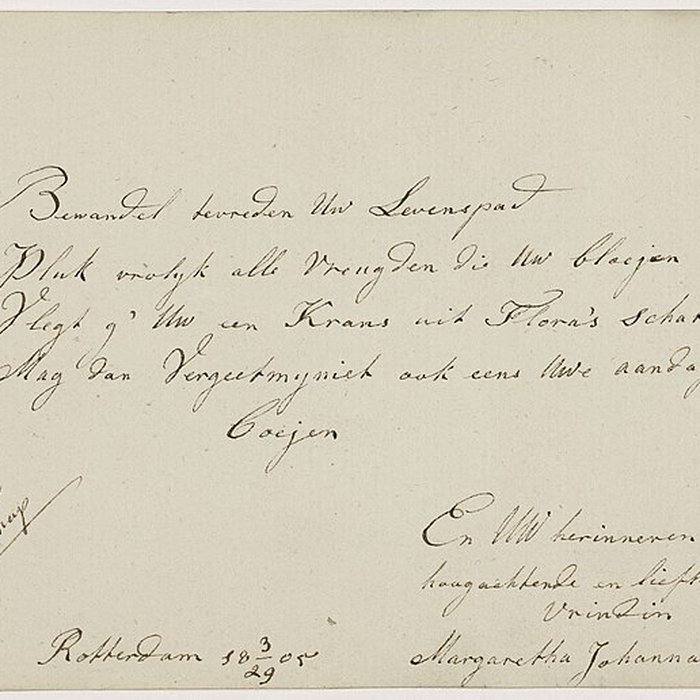 Bewandel tevreden Uw Levenspad
Pluk vrolyk alle Vreugden die Uw bloejen
Vlegt g' Uw een Krans uit Flora's schat
Mag dan Vergeetmyniet ook eens Uwe aanda
Boejen
En UW herinneren
hoogachtende en lief
Vrindin
Rotterdam 18 3/29 05
Margaretha Johanna